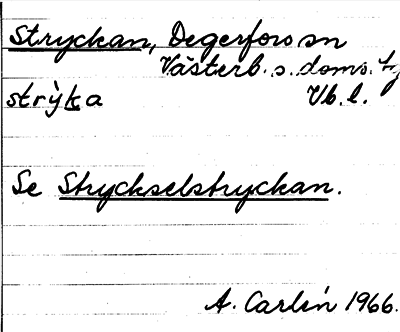 Stryckan, Degerfors sn
Västerb. s. doms.
strỳka Vb. l.
Se Stryckselstryckan.
A. Carlén 1966.